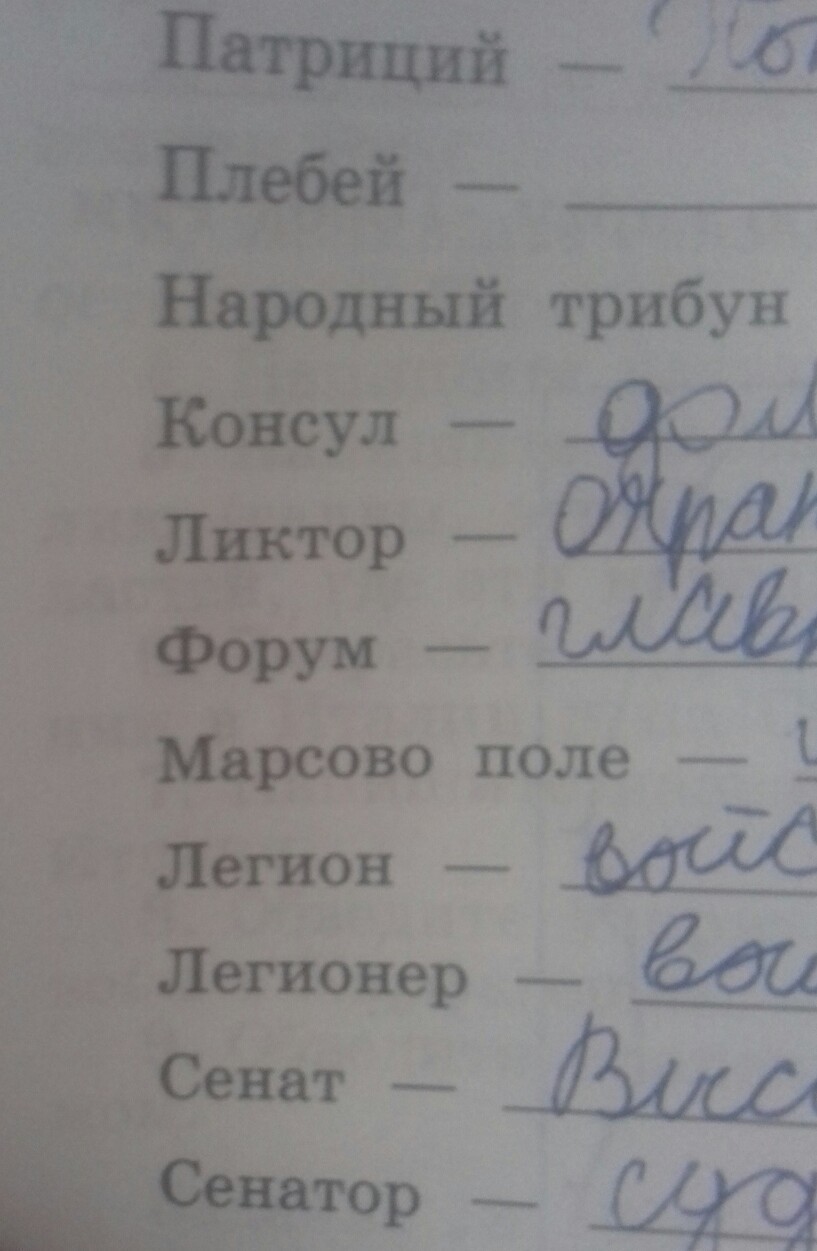 Патриций —
Плебей —
Народный трибун
Консул —
Ликтор — охран
Форум — главн
Марсово поле —
Легион — войс
Легионер — вои
Сенат —
Сенатор — суд